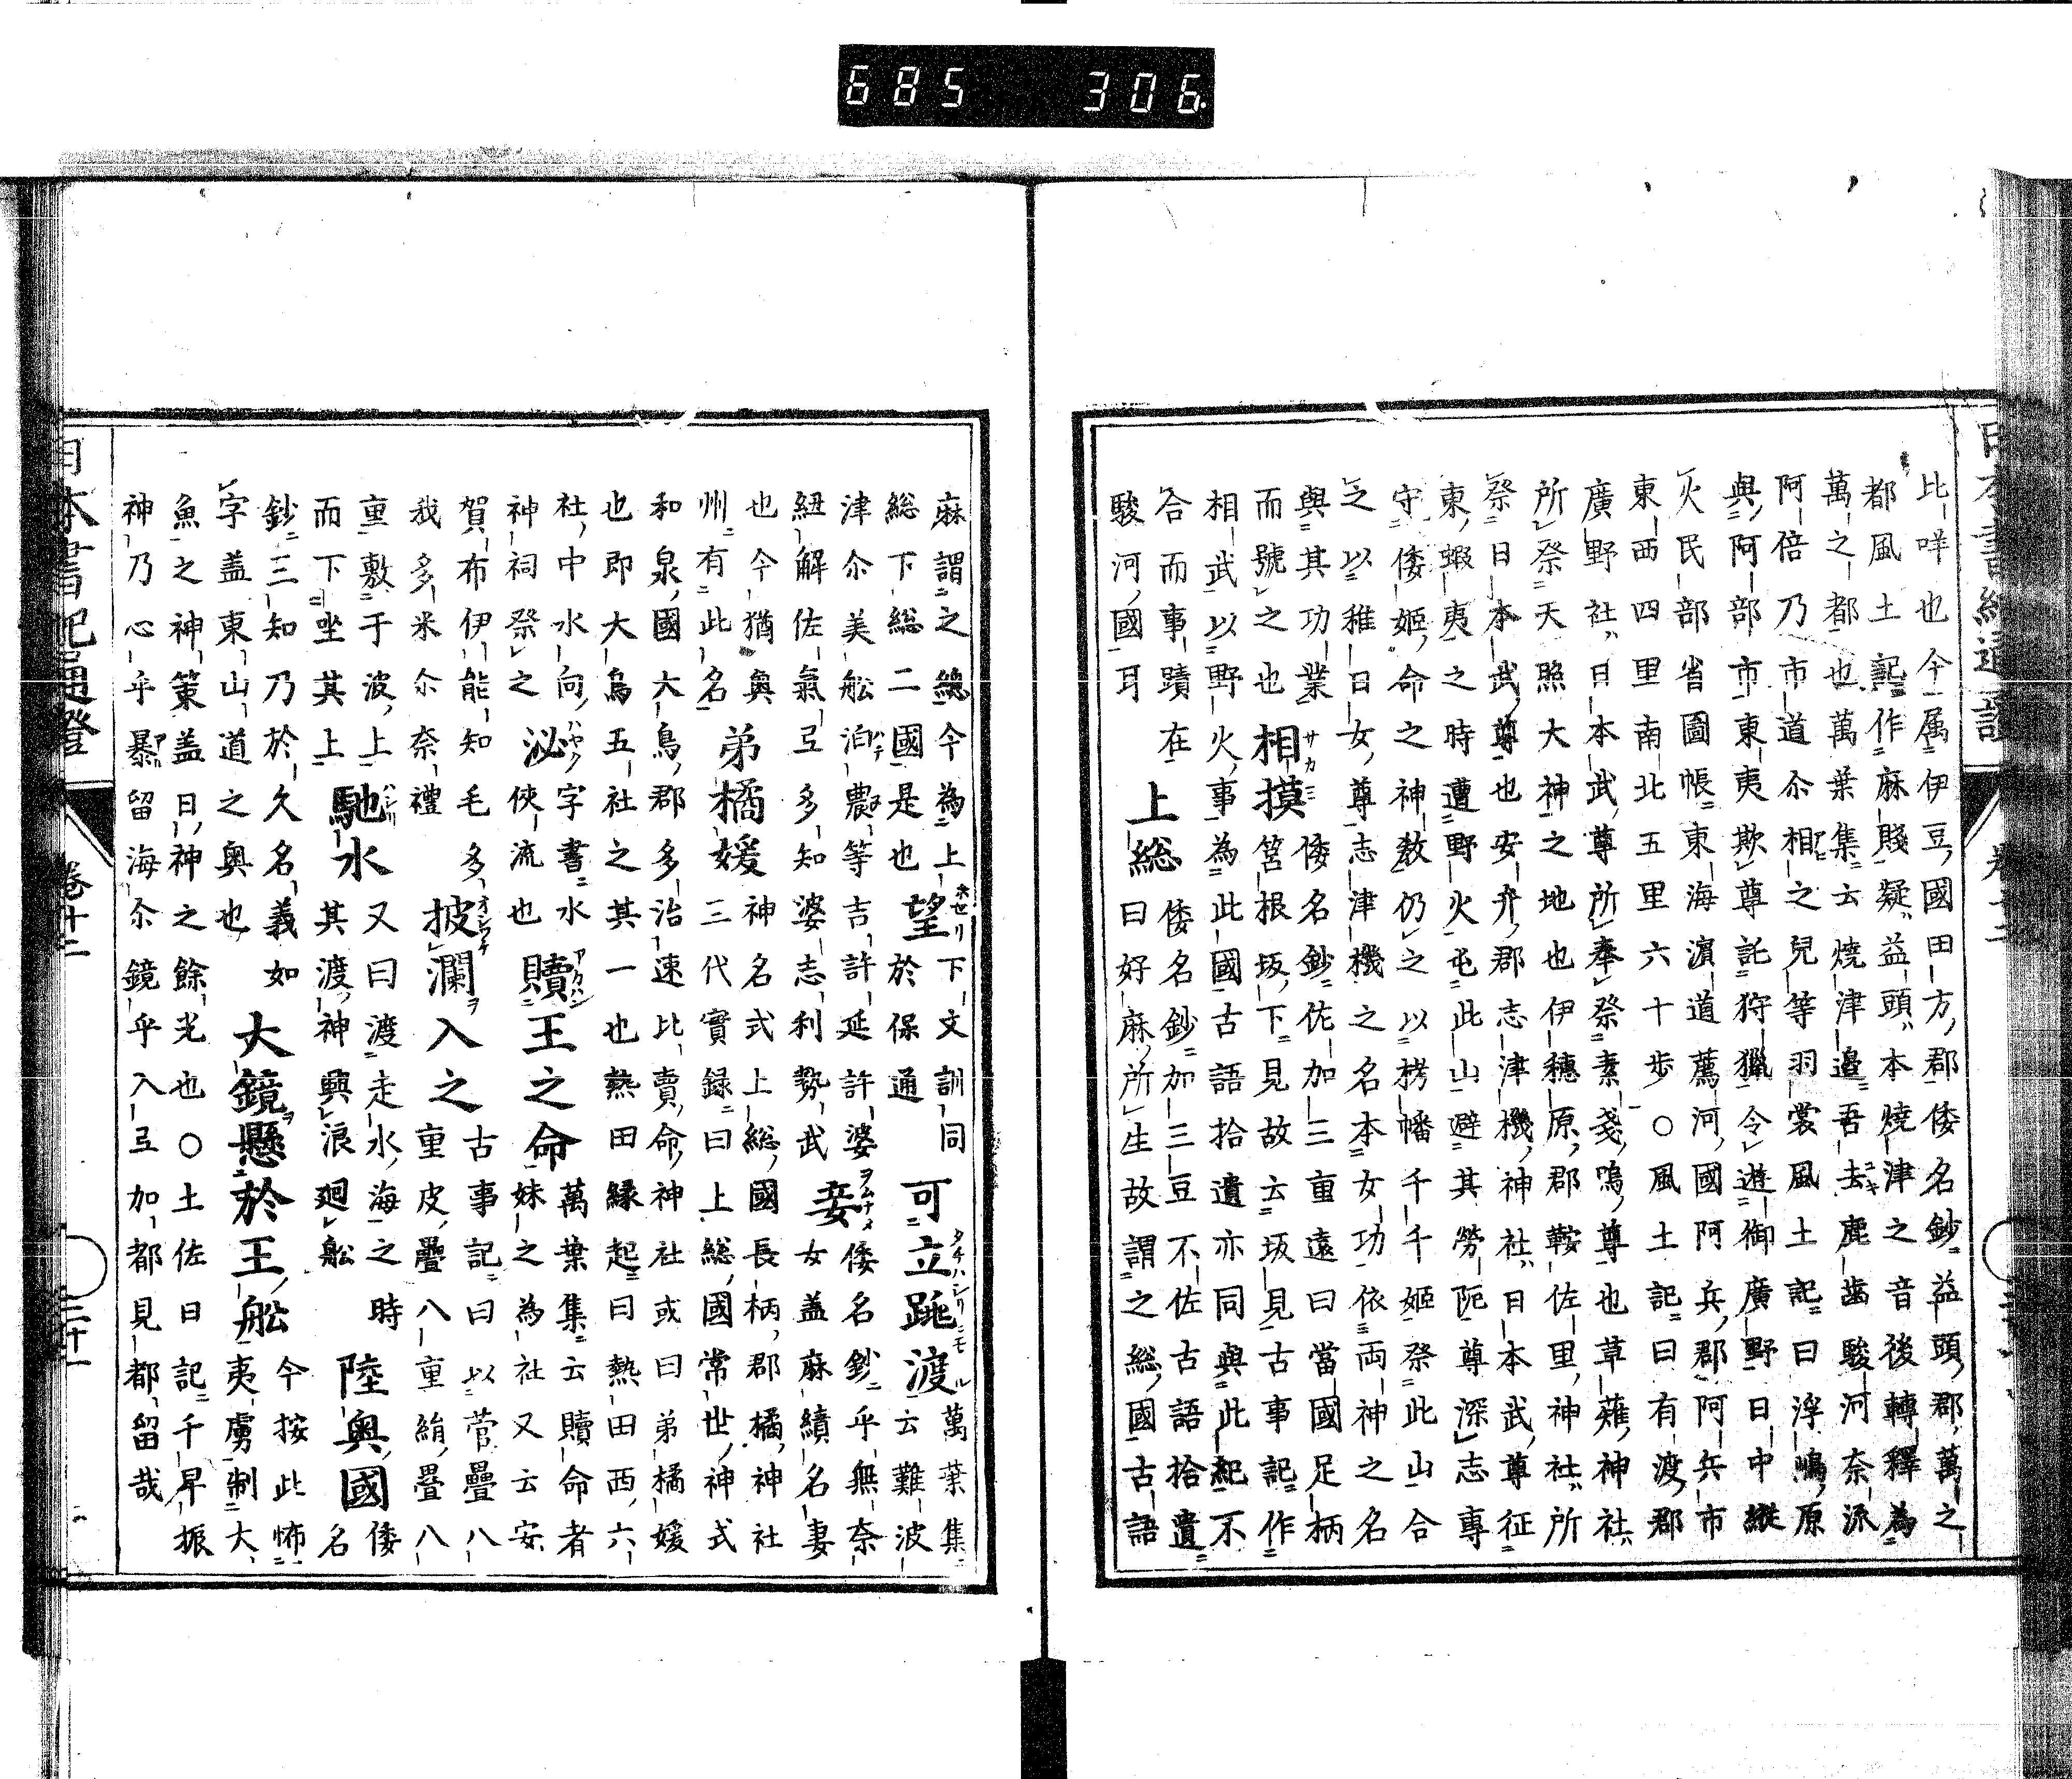 比咩也今属伊豆國田方郡倭名鈔益頭郡萬之
都風土記作麻賤疑益頭本焼津之音後轉釋為
萬之都也萬葉集云焼津邉吾去鹿齒駿河奈派
阿倍乃市道尓相之兒等羽裳風土記曰浮嶋原
與阿部市東夷欺尊託狩獵令遊御廣野曰中縱
火民部省圖帳東海濵道薦河國阿兵郡阿兵市
東西四里南北五里六十歩○風土記曰有渡郡
廣野社日本武尊所奉祭素戔嗚尊也草薙神社
所祭天照大神之地也伊穗原郡鞍佐里神社所
祭日本武尊也安弁郡志津機神社日本武尊征
東蝦夷之時遭野火屯此山避其勞阨尊深志專
守倭姬命之神敎仍之以栲幡千千姬祭此山合
之以稚日女尊志津機之名本女功依両神之名
與其功業
而號之也
相摸
倭名鈔佐加三重遠曰當國足柄
筥根坂下見故云坂見古事記作
相武以野火事為此國古語拾遺亦同與此紀不
合而事蹟在
駿河國耳
上総
倭名鈔加三豆不佐古語拾遺
曰好麻所生故謂之総國古語
麻謂之總今為上
総下総二國是也
望
下文訓同
於保通
可立跳渡
萬葉集
云難波
津尓美舩泊農等吉許延許婆
紐解佐氣弖多知婆志利勢武
妾
倭名鈔乎無奈
女盖麻績名妻
也今猶與
州有此名
弟橘媛
神名式上総國長柄郡橘神社
三代實録曰上総國常世神式
和泉國大鳥郡多治速比賣命神社或曰弟橘媛
也即大鳥五社之其一也熱田縁起曰熱田西六
社中水向
神祠祭之
泌
字書水
俠流也
贖王之命
萬葉集云贖命者
妹之為社又云安
賀布伊能知毛多
我多米尓奈禮
披瀾入之
古事記曰以菅疊八
重皮疊八重絹疊八
重敷于波上
而下坐其上
馳水
又曰渡走水海之時
其渡神興浪廻舩
陸奥國
倭
名
鈔三知乃於久名義如
字盖東山道之奥也
大鏡懸於王舩
今按此怖
夷虜制大
魚之神策盖日神之餘光也○土佐日記千早振
神乃心乎暴留海尓鏡乎入弖加都見都留哉
日本書紀通證
卷十二
二十一
685 306.